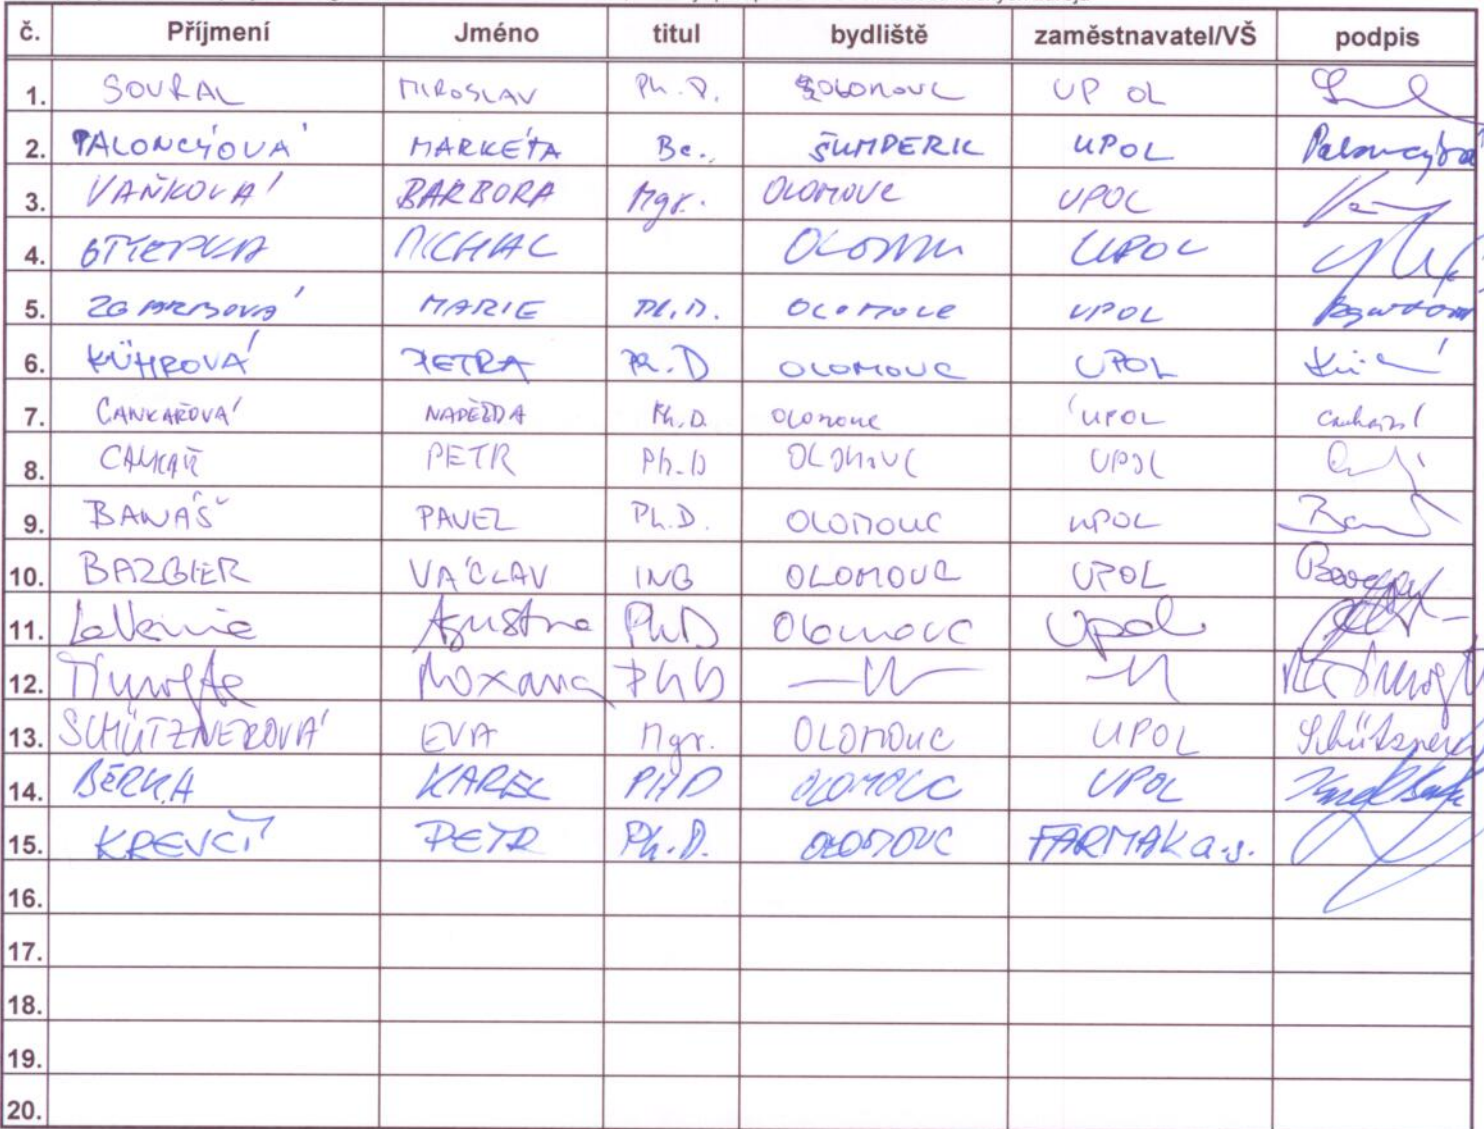 č. Příjmení Jméno titul bydliště zaměstnavatel/VŠ podpis
1. SOURAL MIROSLAV Ph.D. OLOMOUC UP OL
2. PALONCÝOVÁ MARKÉTA Bc. ŠUMPERK UPOL Paloncýová
3. VAŇKOVÁ BARBORA Mgr. OLOMOUC UPOL
4. OTYEPKA MICHAL OLOMOUC UPOL
5. ZGARBOVÁ MARIE Ph.D. OLOMOUC UPOL
6. KÜHROVÁ PETRA Ph.D OLOMOUC UPOL
7. CANKAŘOVÁ NADĚŽDA Ph.D. OLOMOUC UPOL
8. CANKAŘ PETR Ph.D OLOMOUC UPOL
9. BANÁŠ PAVEL Ph.D. OLOMOUC UPOL
10. BAZGIER VÁCLAV ING OLOMOUC UPOL
11. PhD Olomouc Upol
12. Roxana PhD
13. SCHÜTZNEROVÁ EVA Mgr. OLOMOUC UPOL
14. BERKA KAREL PHD OLOMOUC UPOL
15. KREJČÍ PETR Ph.D. OLOMOUC FARMAK a.s.
16.
17.
18.
19.
20.